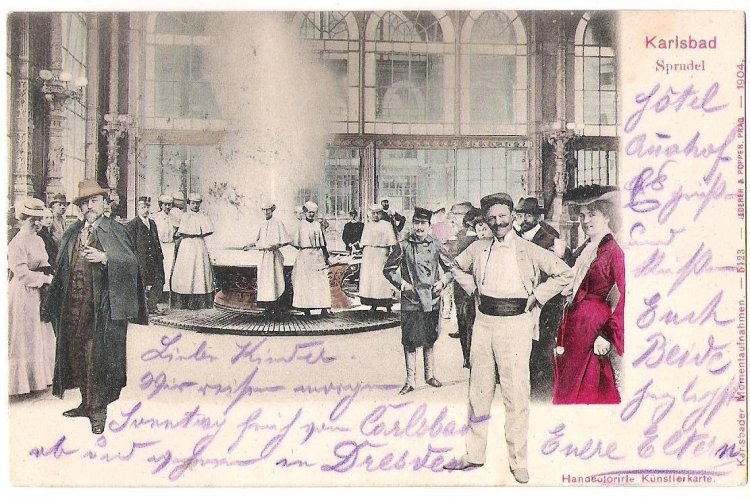 Karlsbad
Sprudel
Liebe Kinder.
Wir reisen morgen
Sonntag früh von Carlsbad
ab und wohnen in Dresden
Hôtel
Es grüßen
und
küssen
Euch
Beide
Euere Eltern
Handcolorirte Künstlerkarte.
Karlsbader Momentaufnahmen 5123 — LEDERER & POPPER, PRAG — 1904.